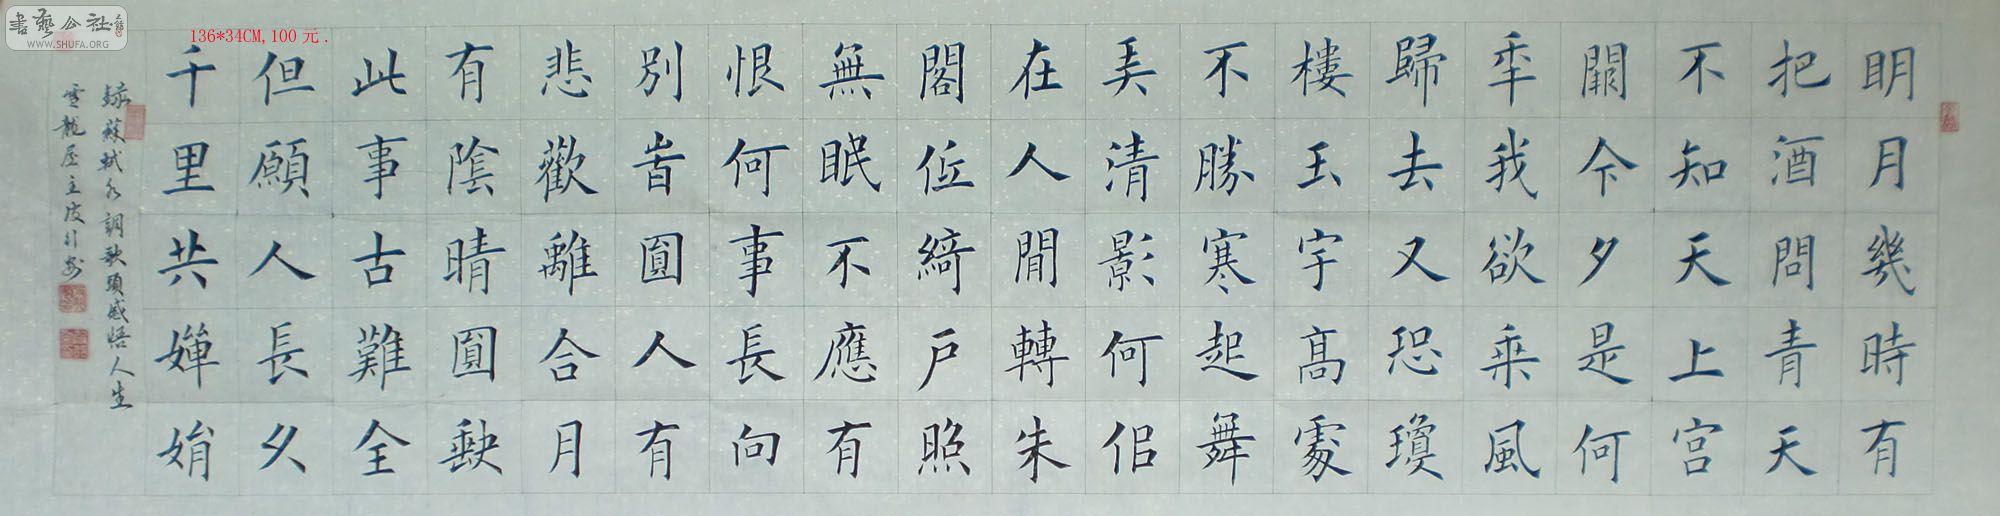 明月幾時有
把酒問青天
不知天上宮
闕今夕是何
年我欲乘風
歸去又恐瓊
樓玉宇高處
不勝寒起舞
弄清影何侣
在人間轉朱
閣低綺户照
無眠不應有
恨何事長向
别旹圓人有
悲歡離合月
有陰晴圓缺
此事古難全
但願人長久
千里共嬋娟
錄蘇軾水調歌頭感悟人生
雪龍屋主
136*34CM,100元.
書藝公社
WWW.SHUFA.ORG